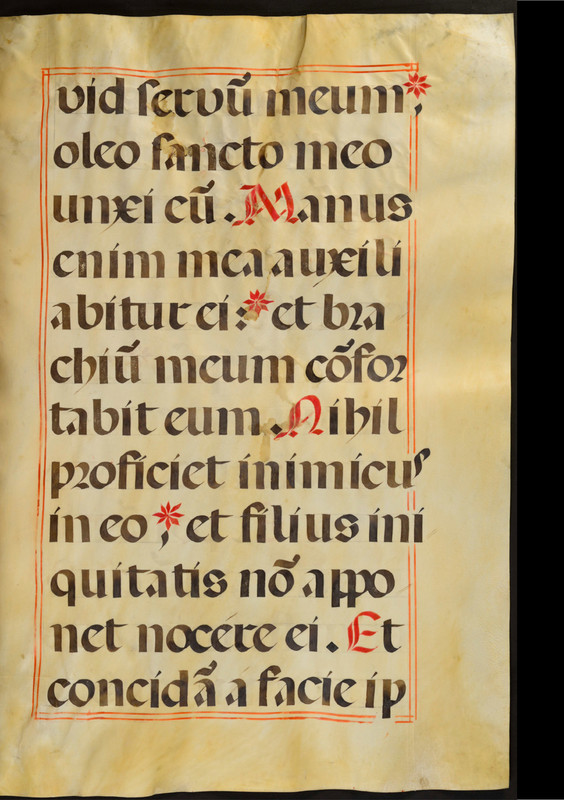 vid servũ meum;*
oleo sancto meo
unxi eũ. Manus
enim mea auxili
abitur ei:* et bra
chiũ meum cõfor
tabit eum. Nihil
proficiet inimicus
in eo;* et filius ini
quitatis nõ appo
net nocere ei. Et
concidã a facie ip